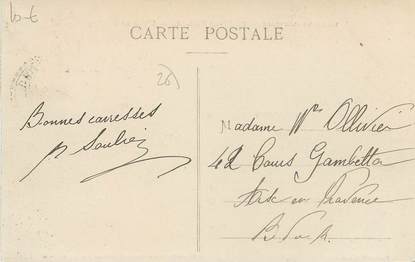 CARTE POSTALE
26
Bonnes caresses
Madame Vve Ollivier
42 Cours Gambetta
Aix en Provence
B. du R.